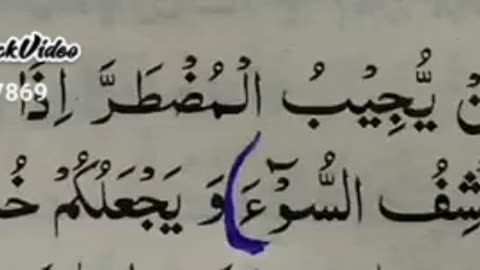 ckVideo
7869
نْ يُّجِيْبُ الْمُضْطَرَّ اِذَا
شِفُ السُّوْٓءَ وَ يَجْعَلُكُمْ خُ